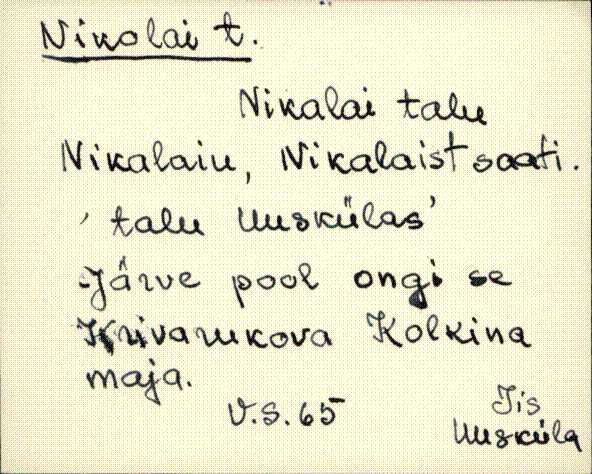 Nikolai t.
Nikalai talu
Nikalaiu, Nikalaist saati.
'talu Uuskülas'
Järve pool ongi se
Krivarukova Kolkina
maja.
V.S. 65
Jis
Uusküla